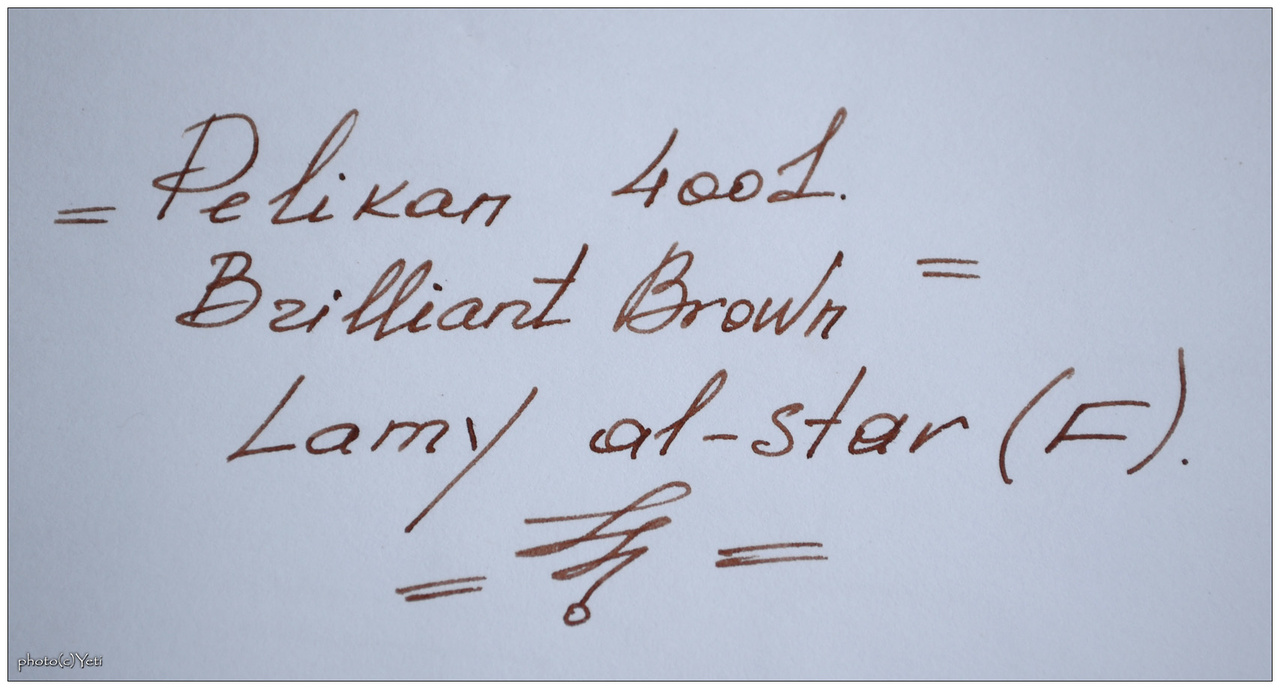 = Pelikan 400L.
Brilliant Brown =
Lamy al-star (F).
= =
photo(c)Yeti